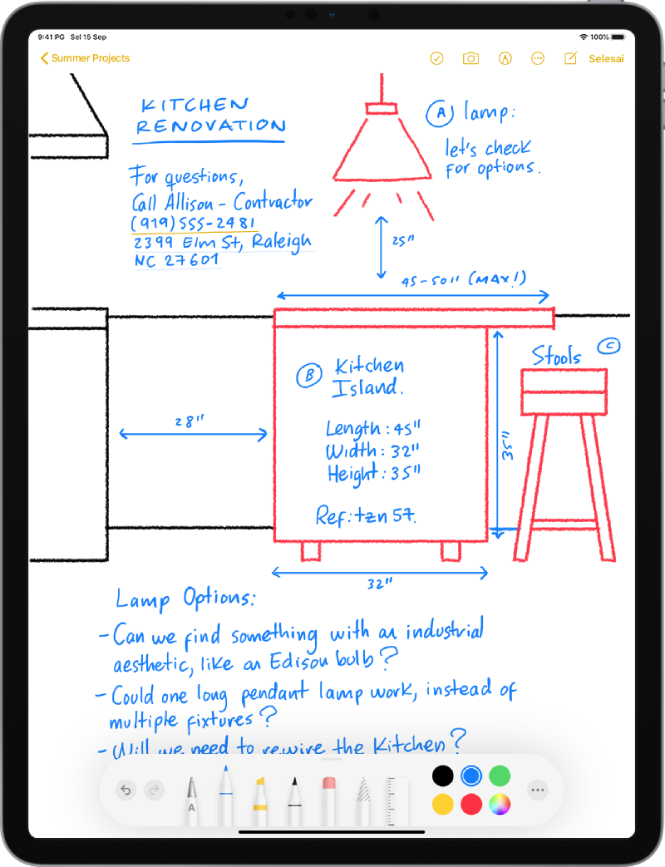 9:41 PG Sel 15 Sep
100%
Summer Projects
Selesai
KITCHEN
RENOVATION
A lamp:
let's check
for options.
For questions,
Call Allison - Contractor
(919) 555-2481
2399 Elm St, Raleigh
NC 27601
25"
45-50" (MAX!)
Stools C
B Kitchen
Island.
28"
Length: 45"
Width: 32"
Height: 35"
35"
Ref: tzn 57.
32"
Lamp Options:
- Can we find something with an industrial
aesthetic, like an Edison bulb?
- Could one long pendant lamp work, instead of
multiple fixtures?
- Will we need to rewire the Kitchen?
A